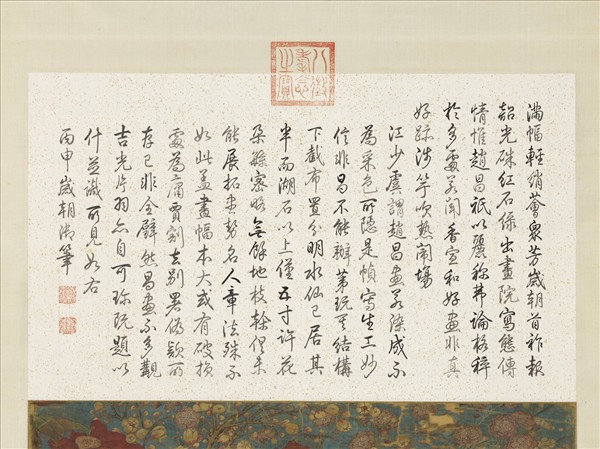 八徵耄念之寶
滿幅輕綃薈衆芳歲朝首祚報
韶光硃紅石綠出畫院寫態傳
情惟趙昌祇以麗稱弗論格
於多處若聞香宣和好畫非真
好踪涉竽吹熱鬧場
江少虞謂趙昌畫若染成不
為采色所隱是幀寫生工妙
信非昌不能辦第玩其結構
下截布置分明水仙已居其
半而湖石以上僅五寸許花
朵密略無餘地枝幹俱未
能展拓名人章法殊不
如此蓋畫幅本大或有破損
處為庸賈割去別署偽款所
存已非全璧然昌畫不多觀
吉光片羽亦自可珍既題以
什並識所見如右
丙申歲朝御筆